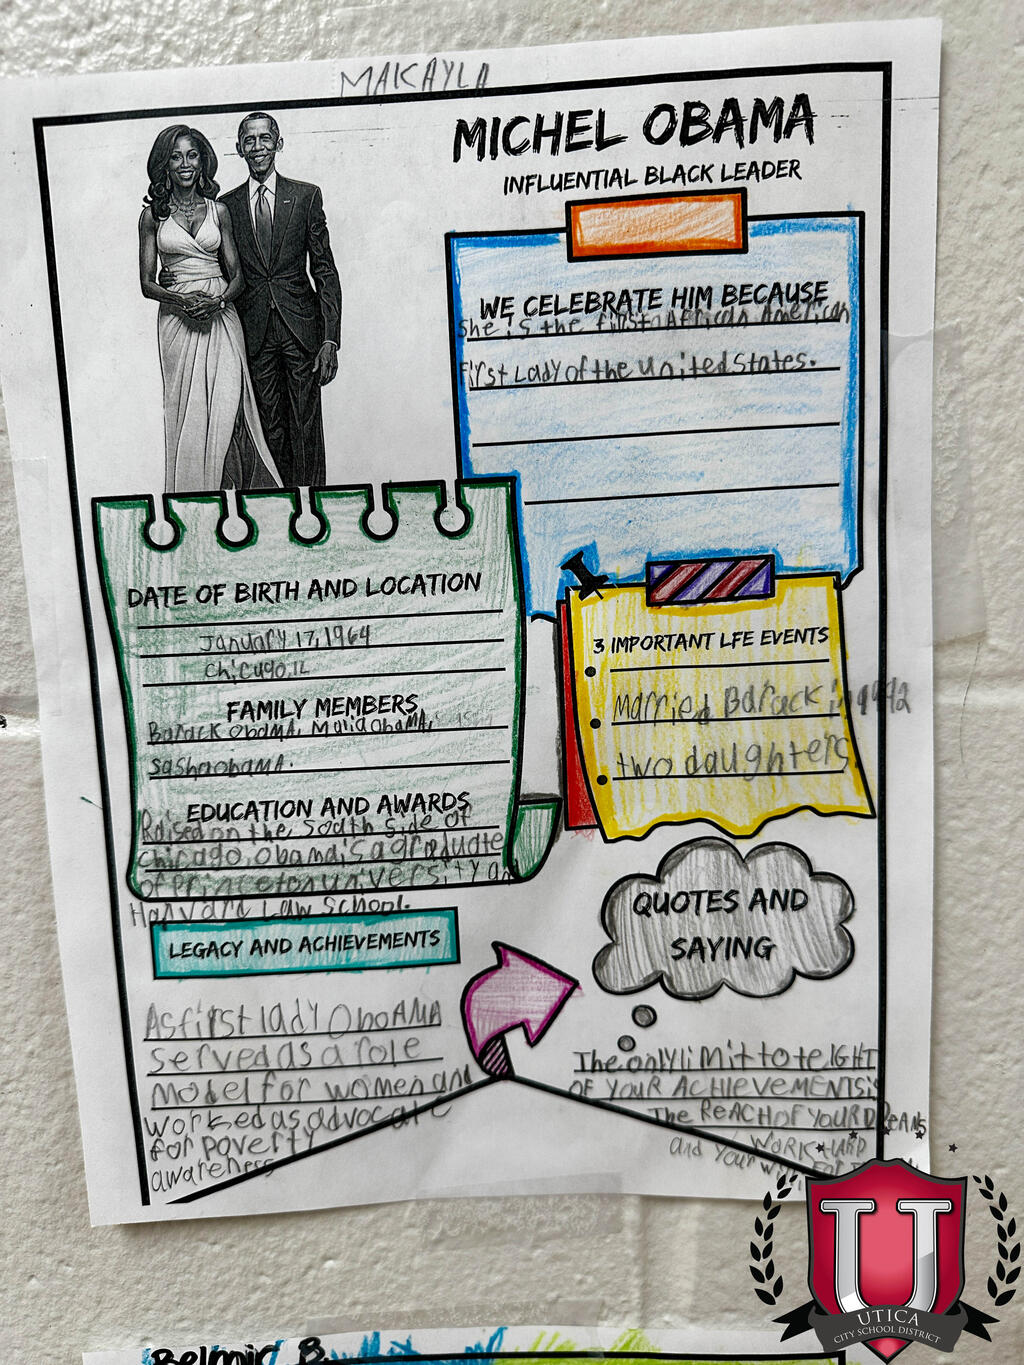 MAKAYLA
MICHEL OBAMA
INFLUENTIAL BLACK LEADER
WE CELEBRATE HIM BECAUSE
She is the first African American
First Lady of the United States.
DATE OF BIRTH AND LOCATION
January 17, 1964
Chicago, IL
FAMILY MEMBERS
Barack ObaMA, Malia ObaMA,
Sasha obaMA.
EDUCATION AND AWARDS
Raised on the South Side of
Chicago, Obama is a graduate
of Princeton University and
Harvard Law School.
3 IMPORTANT LFE EVENTS
Married Barack in 1992
two daughters
LEGACY AND ACHIEVEMENTS
As first lady OboAMA
served as a role
model for women and
worked as advocate
for poverty
awareness
QUOTES AND
SAYING
The only liMit to te IGHT
OF YOUR ACHIEVEMENTS is
The REACH OF YOUR DREAMS
and your WORK HARD
U
UTICA
CITY SCHOOL DISTRICT
Belmir B.